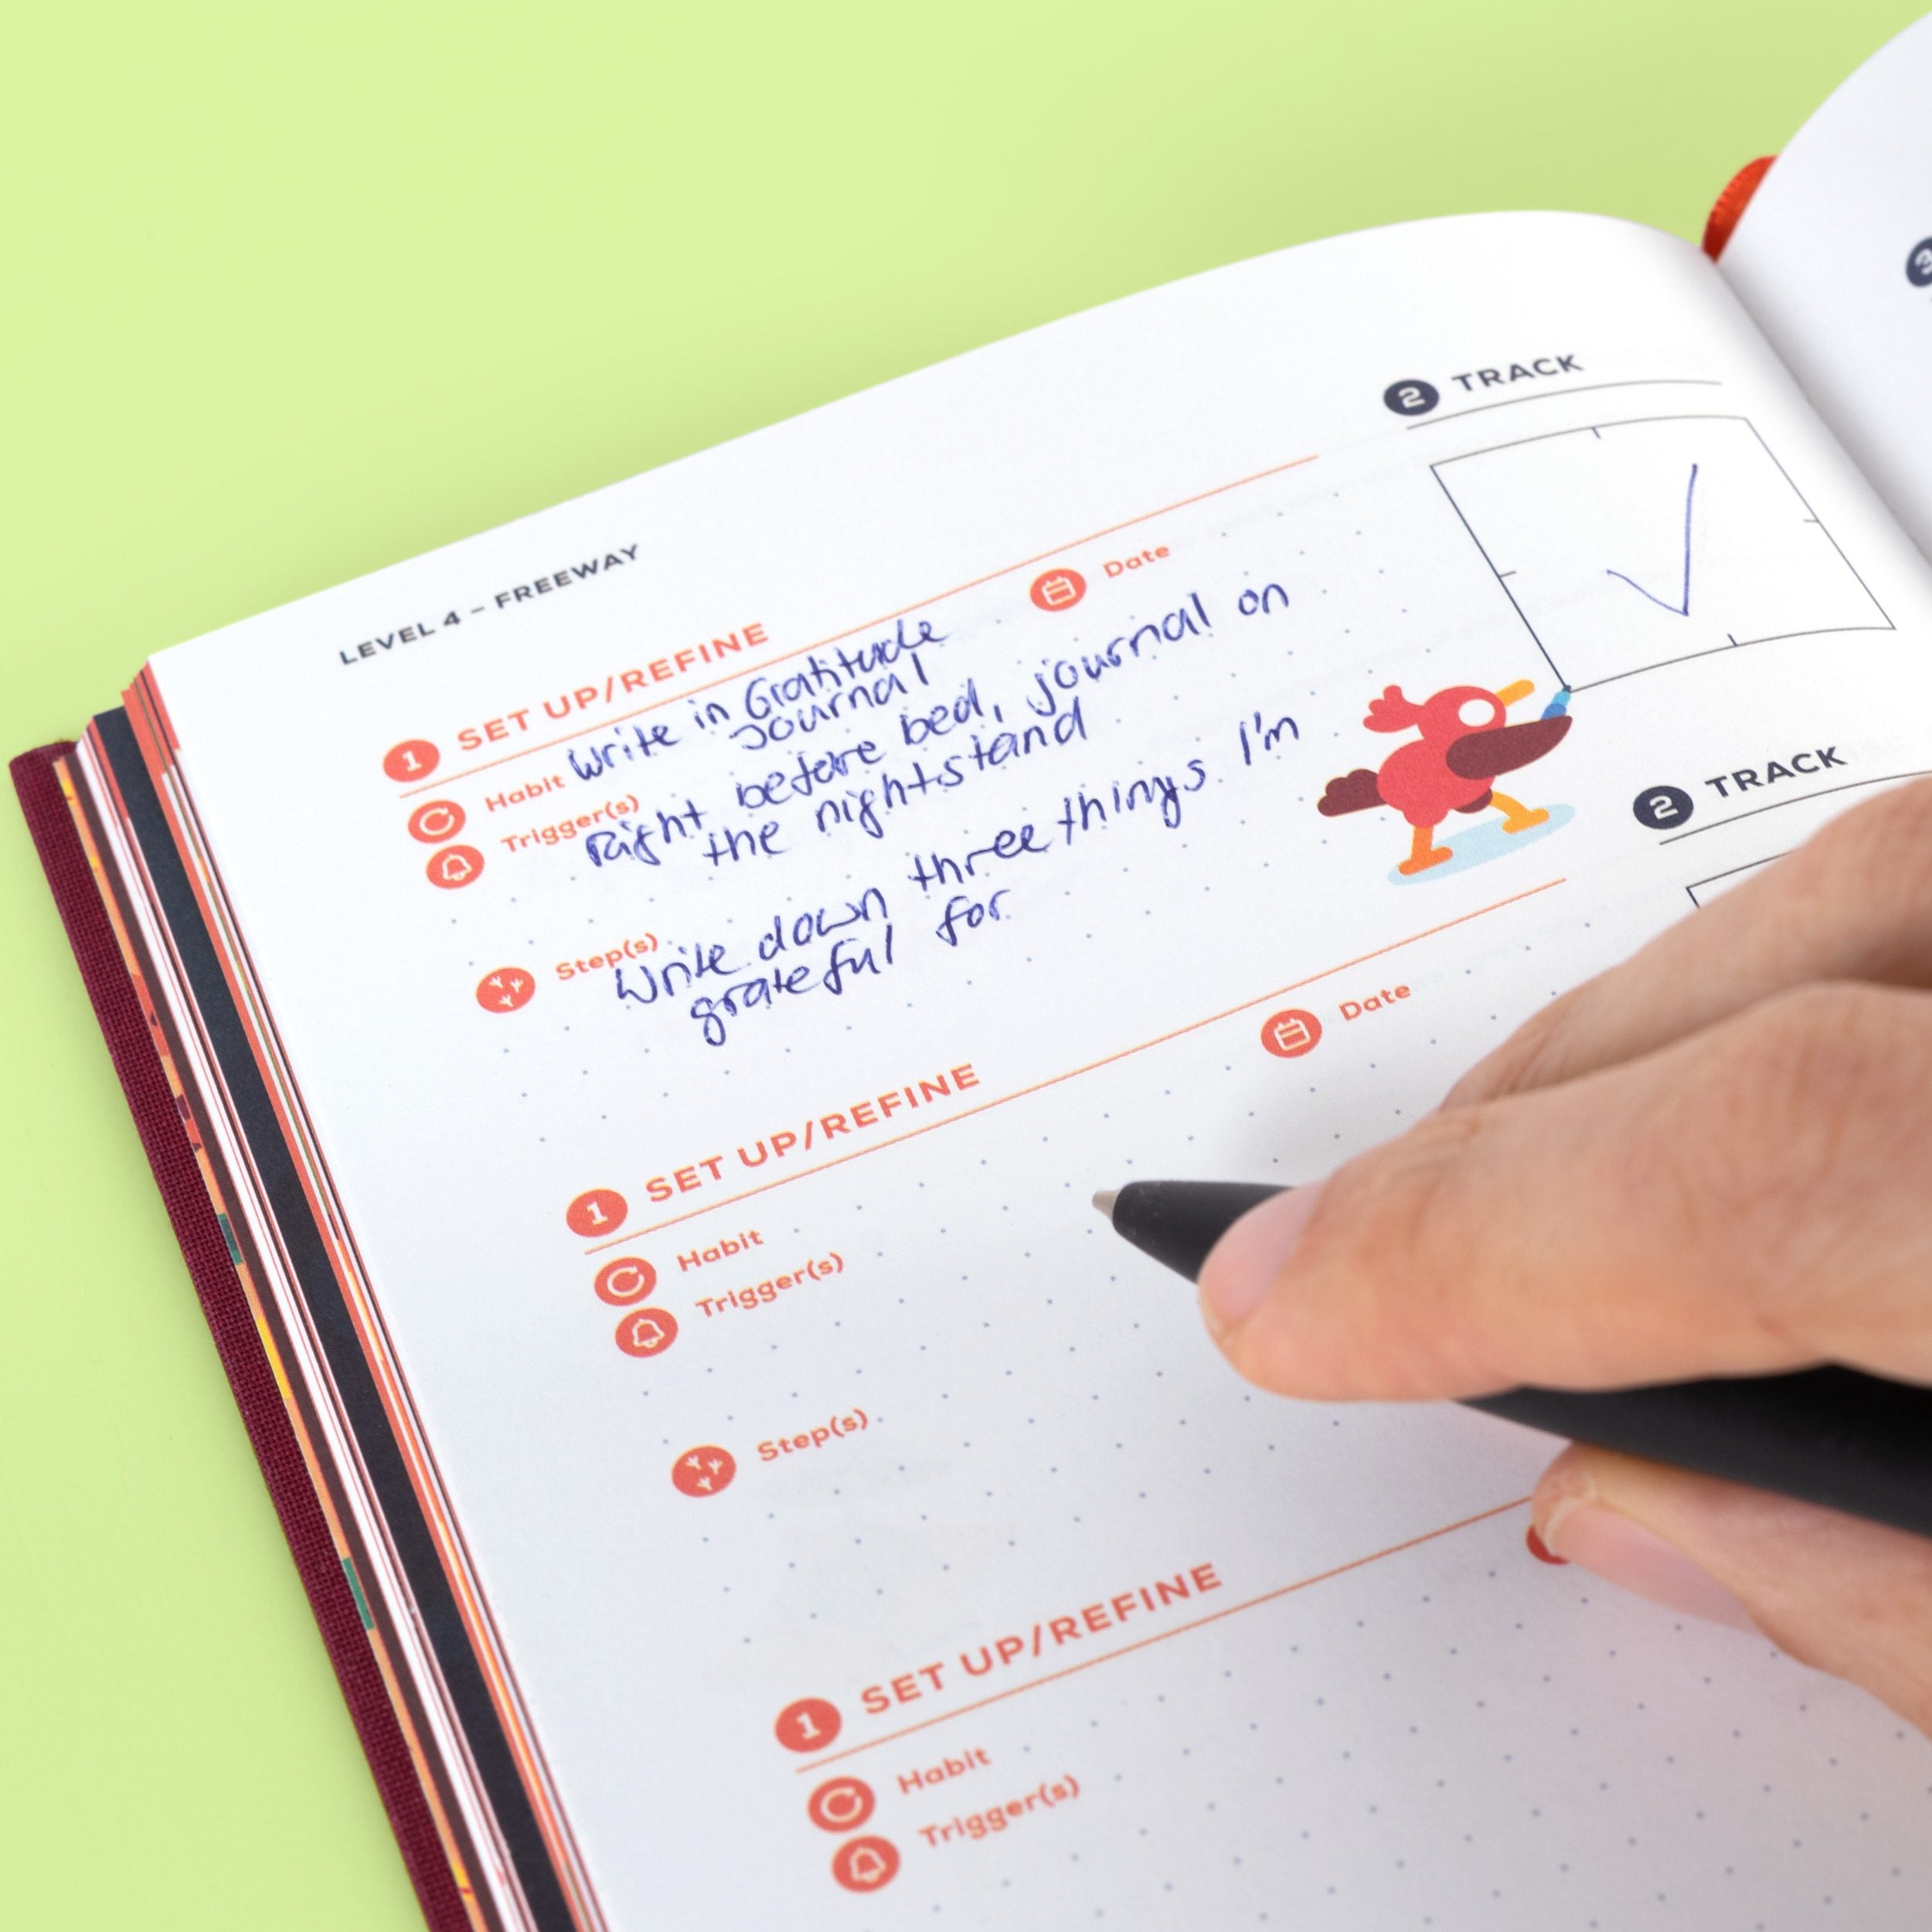 LEVEL 4 – FREEWAY
1 SET UP/REFINE
Date
Habit Write in Gratitude
Journal
Trigger(s)
Right before bed, journal on
the nightstand
Step(s)
Write down three things I'm
grateful for
2 TRACK
3
1 SET UP/REFINE
Date
Habit
Trigger(s)
Step(s)
2 TRACK
1 SET UP/REFINE
Habit
Trigger(s)